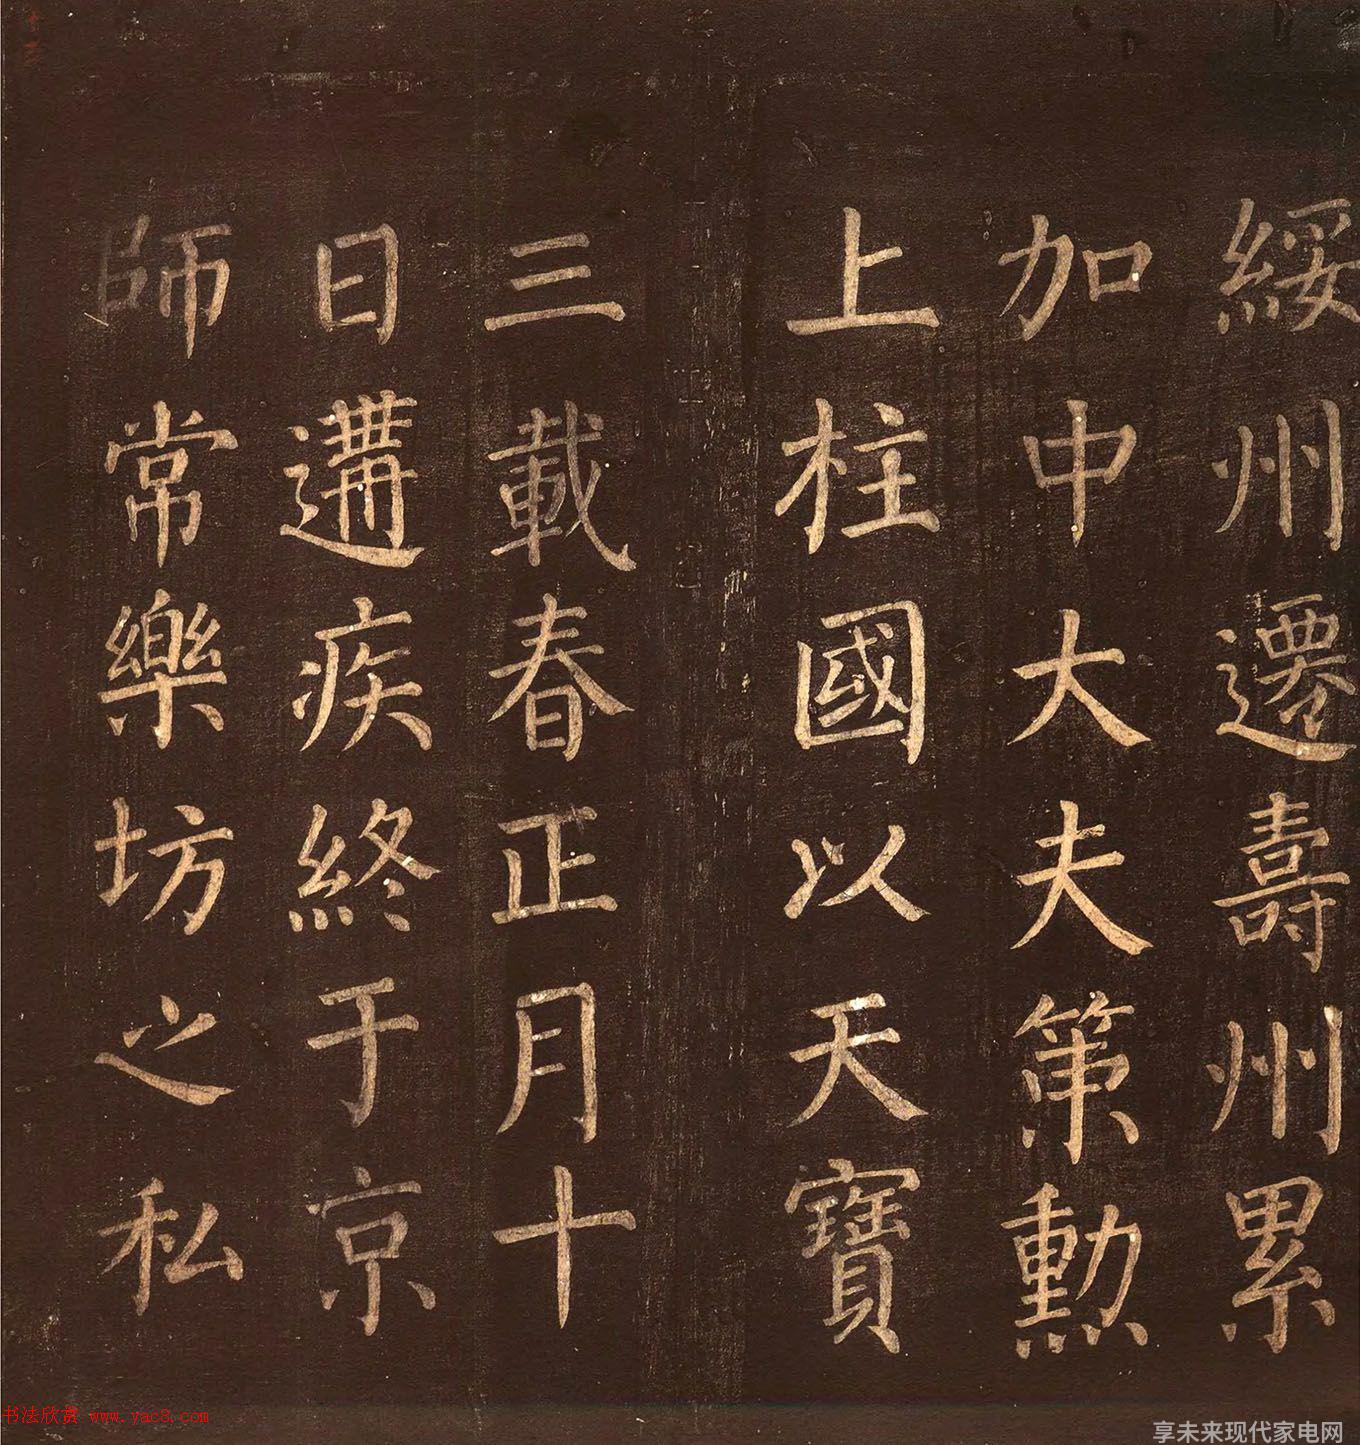 綏州遷壽州累
加中大夫第勳
上柱國以天寶
三載春正月十
日遘疾終于京
師常樂坊之私
书法欣赏 www.yac8.com
享未来现代家电网